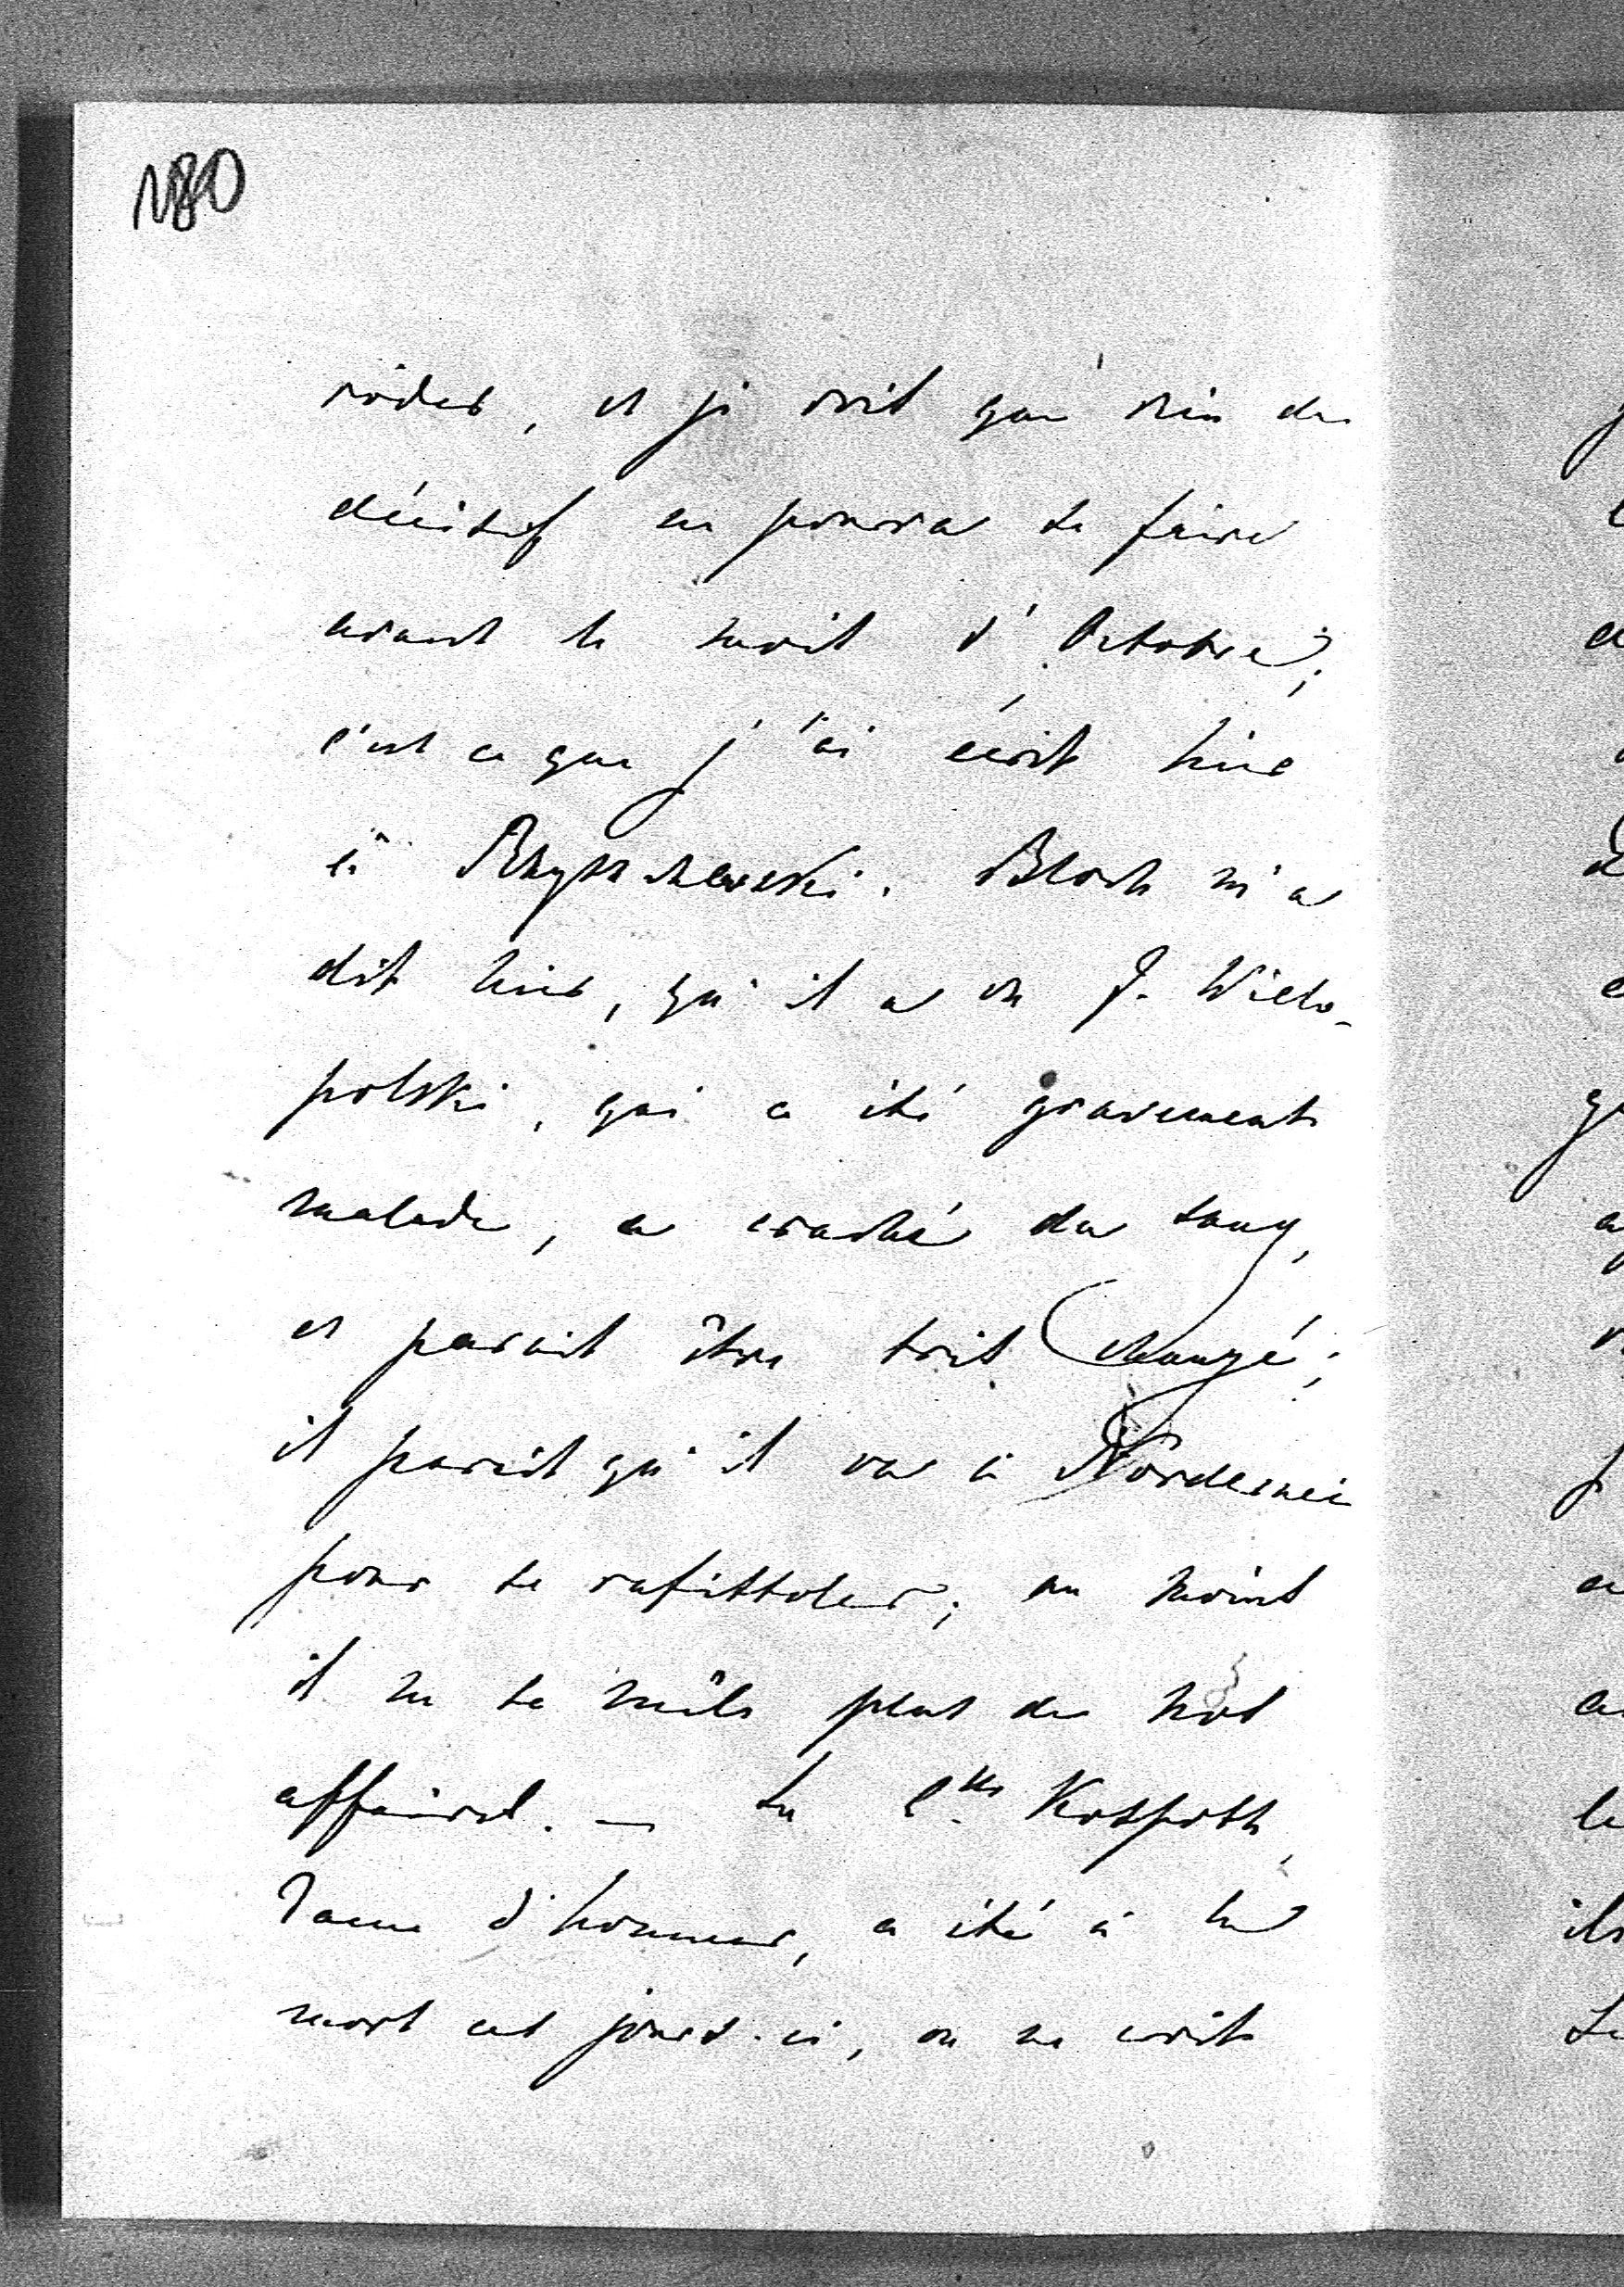 180
et je crois que rien de
décisif ne pourra se faire
avant le mois d'Octobre;
c'est ce que j'ai écrit hier
à Bloch m'a
dit hier, qu'il a vu J. Wielo-
polski, qui a été gravement
malade, a craché du sang,
et parait être très changé;
il parait qu'il va à Nordernei
pour se rafistoler; au moins
il ne se mêle plus de nos
affaires. — La C.sse Kospoth,
Dame d'honneur, a été à la
mort ces jours-ci, on ne croit